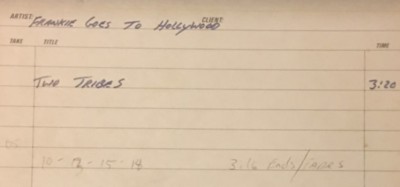 ARTIST: FRANKIE GOES TO HOLLYWOOD CLIENT:
TAKE TITLE TIME
TWO TRIBES 3:20
10 - 13 - 15 - 18 3:16 Ends /